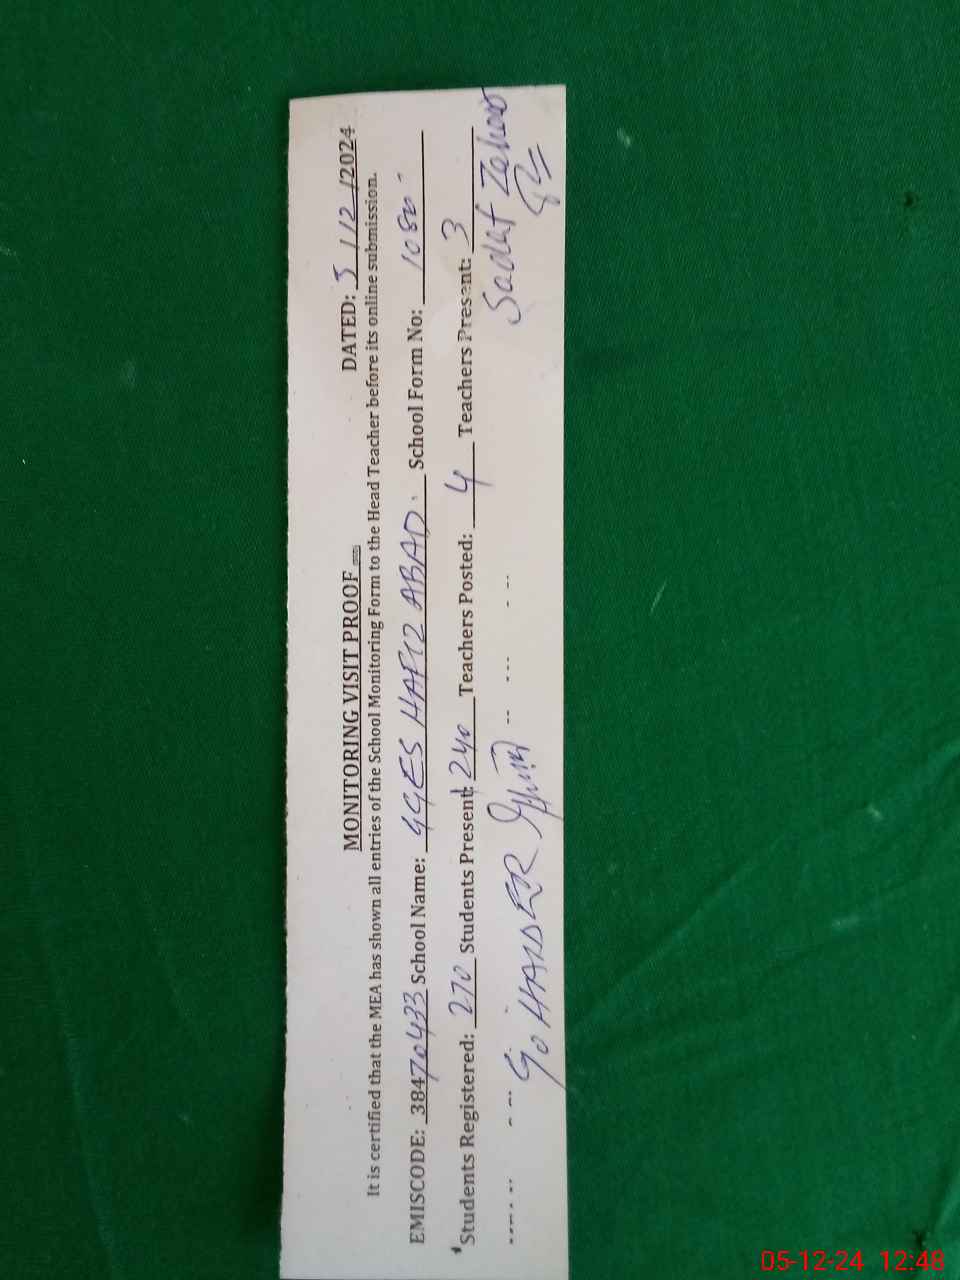 MONITORING VISIT PROOF DATED: 5 /12 /2024
It is certified that the MEA has shown all entries of the School Monitoring Form to the Head Teacher before its online submission.
EMISCODE: 38470433 School Name: GGES HAFIZ ABAD. School Form No:
Students Registered: 270 Students Present: 240 Teachers Posted: 4 Teachers Present: 3
HAIDER Sadaf Zahoor
05-12-24 12:48